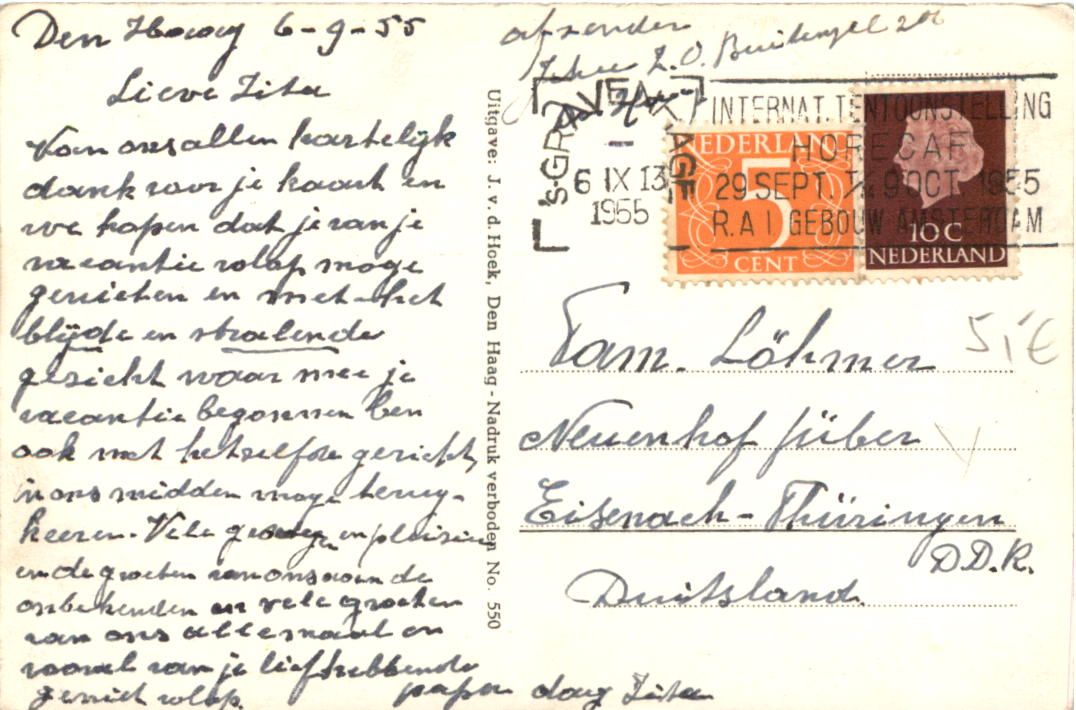 Den Haag 6-9-55
Lieve Zita
Van ons allen hartelijk
dank voor je kaart en
we hopen dat je van je
vacantie volop moge
genieten en met het
blijde en stralende
gezicht waar mee je
vacantie begonnen ben
ook met hetzelfde gezicht,
in ons midden moge terug-
keeren. Vele en plezier
en de groeten van ons aan de
onbekenden en vele groeten
van ons allemaal en
vooral van je liefhebbende
geniet volop. papa dag Zita
Uitgave: J. v. d. Hoek, Den Haag - Nadruk verboden No. 550
afzender
Z.O. Buitensingel 200
's-GRAVENHAGE
6 IX 13
1955
INTERNAT. TENTOONSTELLING
HORECAF
29 SEPT. T/M 9 OCT. 1955
R.A.I. GEBOUW AMSTERDAM
NEDERLAND
5
CENT
10 C
NEDERLAND
Fam. Löhmer
Neuenhof über
Eisenach-Thüringen
D.D.R.
Duitsland.